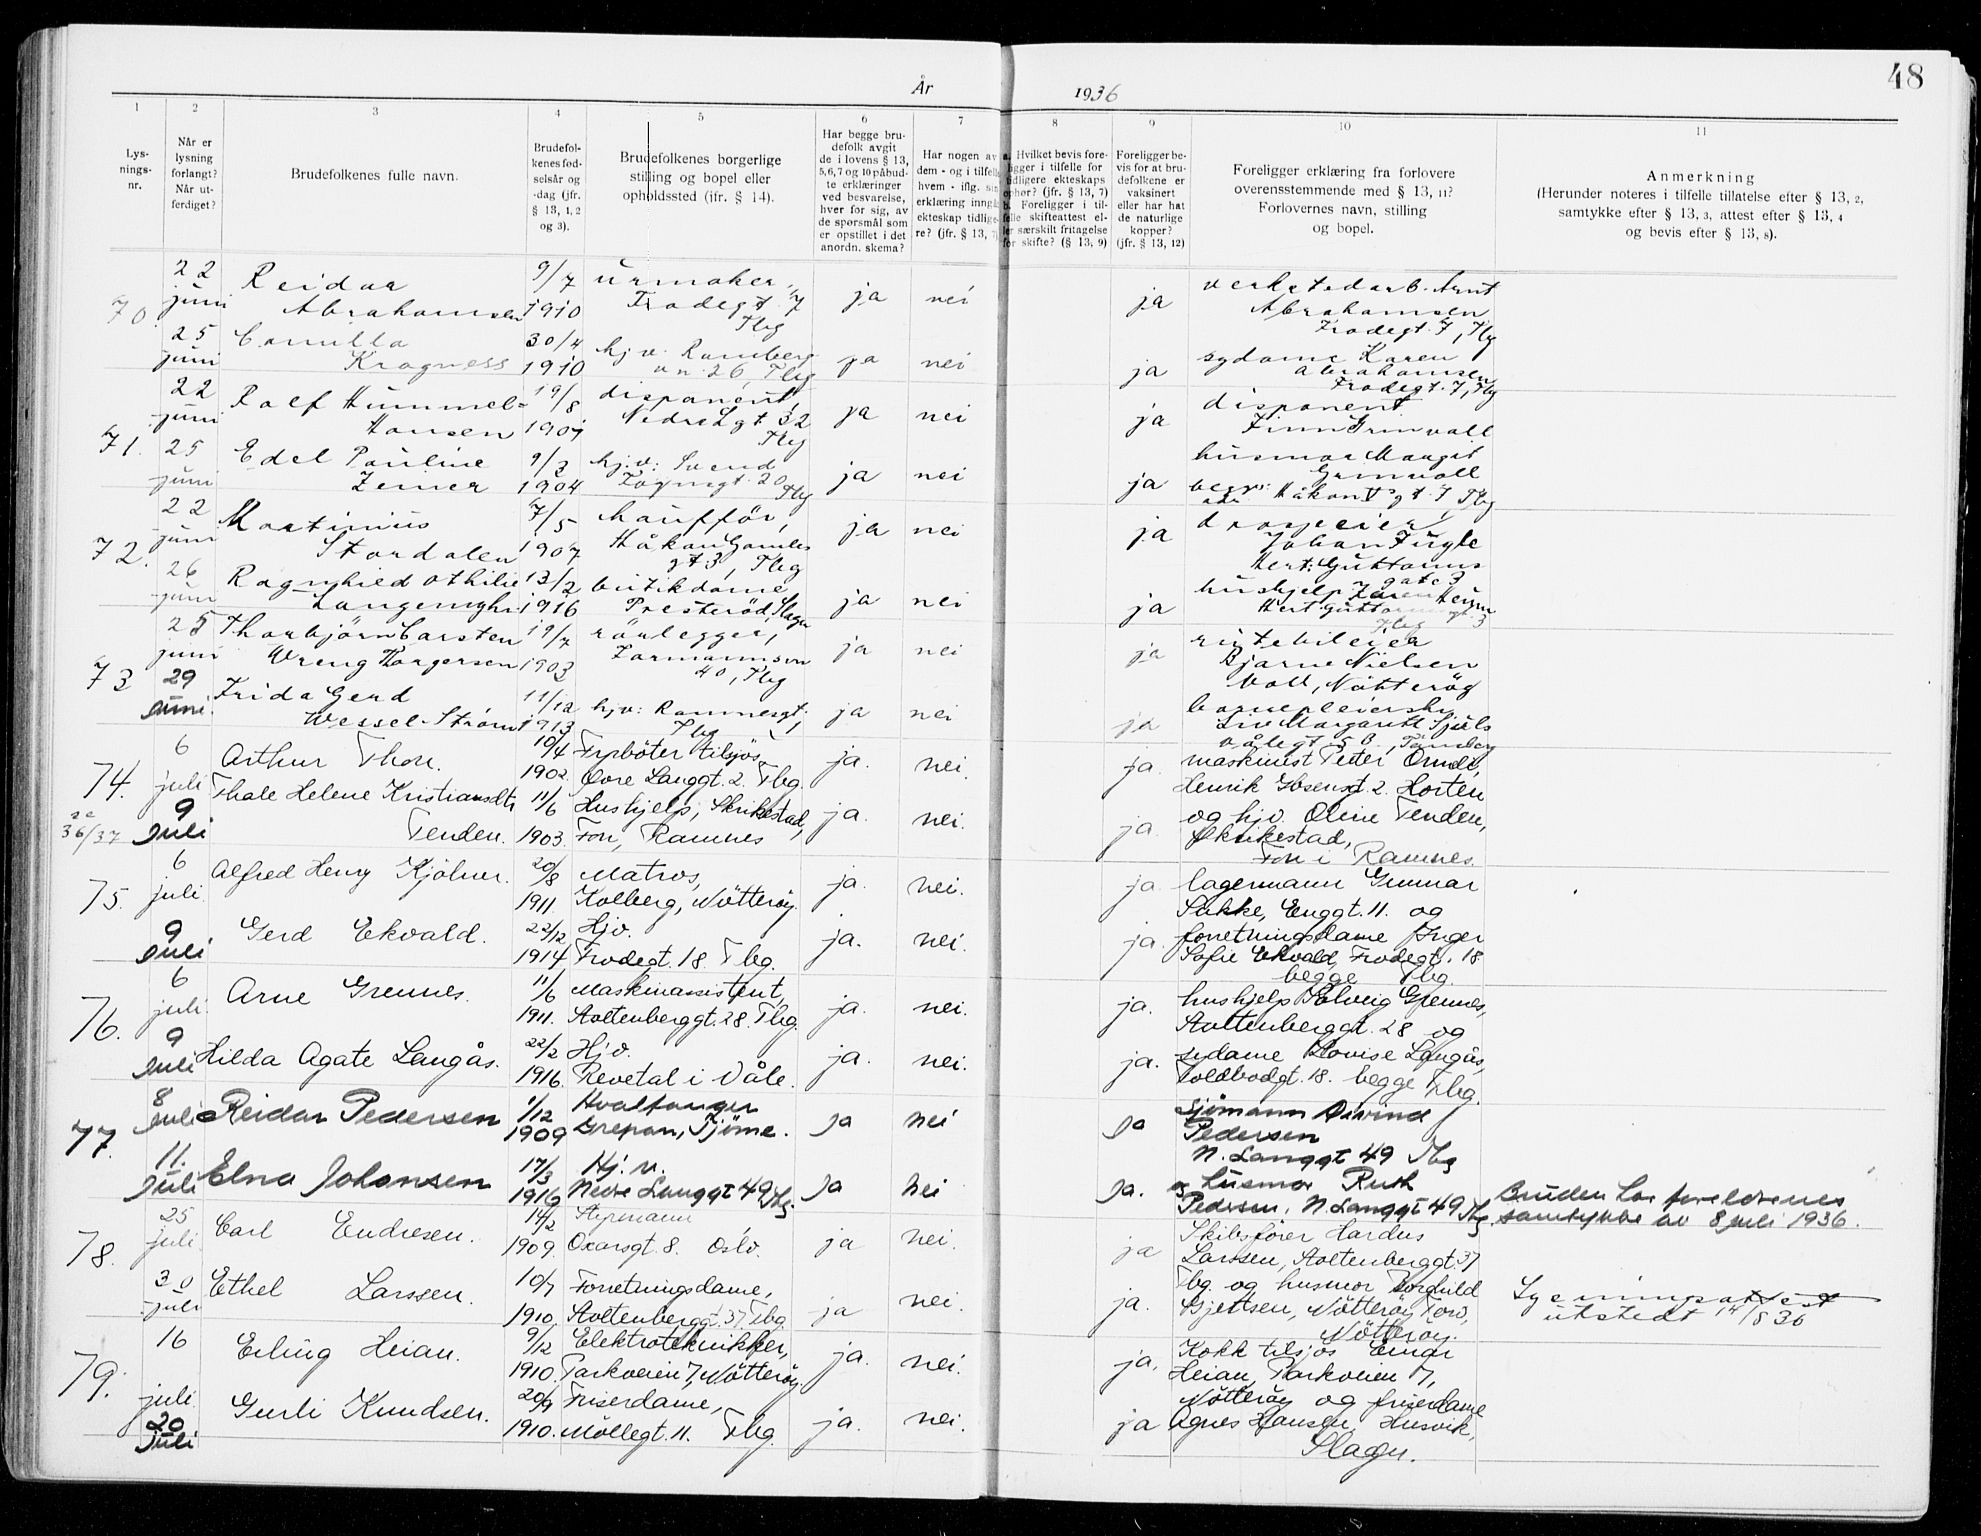 48
År 1936
1
2
3
4
5
6
7
8
9
10
11
Lys-
nings-
nr.
Når er
lysning
forlangt?
Når ut-
ferdiget?
Brudefolkenes fulle navn.
Brudefol-
kenes fød-
selsår og
-dag (jfr.
§ 13, 1, 2
og 3).
Brudefolkenes borgerlige
stilling og bopel eller
opholdssted (jfr. § 14).
Har begge bru-
defolk avgit
de i lovens § 13,
5, 6, 7 og 10 påbud-
te erklæringer
ved besvarelse,
hver for sig, av
de spørsmål som
er opstillet i det
anordn. skema?
Har nogen av
dem - og i tilfelle
hvem - iflg. sin
erklæring inngått
ekteskap tidlige-
re? (jfr. § 13, 7)
a. Hvilket bevis fore-
ligger i tilfelle for
tidligere ekteskaps
ophør? (jfr. § 13, 7)
b. Foreligger i til-
felle skifteattest el-
ler særskilt fritagelse
for skifte? (§ 13, 9)
Foreligger be-
vis for at bru-
defolkene er
vaksinert
eller har hat
de naturlige
kopper?
(jfr. § 13, 12)
Foreligger erklæring fra forlovere
overensstemmende med § 13, 11?
Forlovernes navn, stilling
og bopel.
Anmerkning
(Herunder noteres i tilfelle tillatelse efter § 13, 2,
samtykke efter § 13, 3, attest efter § 13, 4
og bevis efter § 13, 8).
70.
22 juni Reidar 9/7 urmaker, ja nei ja verkstedarb. Arnt
Abrahamsen 1910 Frodegt. 7 Abrahamsen
Tbg Frodegt. 7, Tbg
25 juni Camilla 30/4 hj.v. Ramberg ja nei ja sydame Karen
Kragness 1910 vn. 26, Tbg Abrahamsen
Frodegt. 7, Tbg
71.
22 juni Rolf Hummel- 19/8 disponent, ja nei ja disponent
Hansen Nedre Lgt 32 Finn Grinvoll
Tbg
25 juni Edel Pauline hj.v: Svend ja nei ja husmor Margit
Zeiner 1904 20 Tbg Grinvoll
Håkon V gt. 7 Tbg
72.
22 juni Martinius 7/5 chauffør, ja nei ja drosjeeier,
Stordalen 1907 Håkon Gamles Johan Fugle
gt 3, Tbg Hert. Guttorms
gate 3
26 juni Ragnhild Othilie 13/2 butikdame, ja nei ja hushjelp
1916 Presterød, Slagn Hert. Guttorms gt. 3
Tbg
73
25 juni Thorbjörn Carsten 19/7 rörlegger, ja nei ja rutebileier
Wreng Horgersen 1903 Farmannsvn Bjarne Nielsen
40, Tbg Voll, Nøtterøy
29 juni. Frida Gerd 11/12 hj.v: Ramnesgt. ja nei ja barnepleierske
Wessel-Strøm 1913 Tbg Liv Margareth
5 B, Tønsberg
74.
36/37
6 juli Arthur Thon. 10/4 Fyrböter tilsjös, ja. nei. ja. maskinist Peter
1902. Övre Langgt. 2. Tbg. Henrik Ibsensgt. 2. Horten
9 Juli Thale Helene Kristiansdtr 11/6 Hushjelp, Skrikestad, ja. nei. ja. og hjv. Oline Tenden,
Tenden. 1903. Fon, Ramnes Skrikestad,
Fon i Ramnes.
75.
6 juli Alfred Henry Kjölner. 20/8 Matros, ja. nei. ja. lagermann Gunnar
1911. Kolberg, Nötteröy. Enggt. 11. og
9 Juli Gerd Ekvald. 22/12 Hjv. ja. nei. ja. forretningsdame Inger
1914 Frodegt. 18. Tbg. Sofie Ekvald, Frodegt. 18.
begge Tbg.
76.
6 juli Arne Grennes. 11/6 Maskinassistent, ja. nei. ja. hushjelp Solveig Grennes,
1911. Anltenberggt. 28. Tbg. Anltenberggt. 28 og
9 Juli Hilda Agate Langås. 22/2 Hjv. ja. nei. ja. sydame Lovise Langås,
1916. Revetal i Våle. Toldbodgt. 18. begge Tbg.
77.
8 Juli Reidar Pedersen 1/12 Hvalfanger ja nei ja Sjömann Öivind
1909 Grepan, Tjöme. Pedersen
N. Langgt 49 Tbg
11. Juli Elna Johansen 17/3 Hj. v. ja nei ja. og husmor Ruth Bruden har foreldrenes
1916 Nedre Langgt 49 Tbg. Pedersen, N. Langgt 49 Tbg samtykke av 8 juli 1936.
78.
25 juli. Carl Endresen. 14/2 Styrmann ja nei. ja Skibsfører Hardus
1909. Oscarsgt. 8. Oslo. Larssen, Anltenberggt. 37
30 juli Ethel Larssen. 10/7 Forretningsdame, ja nei. ja. Tbg. og husmor Lysningsattest
1910. Anltenberggt. 37. Tbg. Gjertsen, Nötteröy utstedt 14/8 36
Nötteröy.
79.
16 juli Erling Heian. 9/12 Elektrotekniker, ja. nei. ja. Kokk tilsjös Einar
1910. Parkveien 7, Nötteröy. Heian, Parkveien 7,
20 Juli Gurli Knudsen. 20/9 Friserdame, ja. nei. ja Nötteröy og friserdame
1910. Möllegt. 11. Tbg. Agnes Hansen, Husvik,
Slagn.